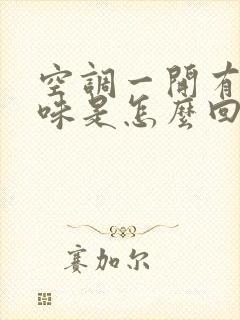 空調一開有
味是怎麼回
赛加尔